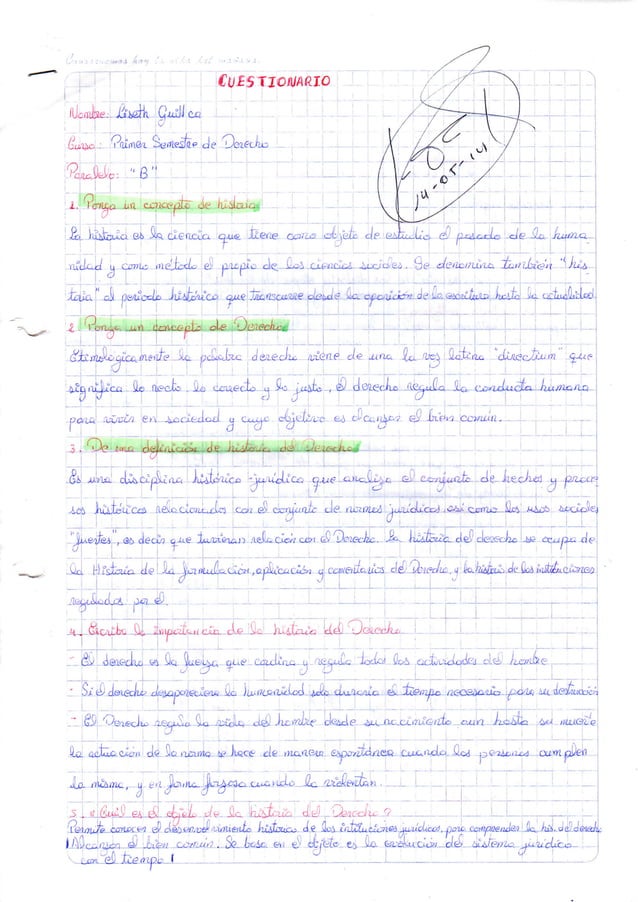 Construimos hoy la vida del mañana.
CUESTIONARIO
Nombre: Liseth Guillca
Curso: Primer Semestre de Derecho
Paralelo: "B"
14-05-14
1. Ponga un concepto de historia
La historia es la ciencia que tiene como objeto de estudio el pasado de la huma
nidad y como método el propio de las ciencias sociales. Se denomina también "his
toria" al periodo histórico que transcurre desde la aparición de la escritura hasta la actualidad.
2. Ponga un concepto de Derecho
Etimológicamente la palabra derecho viene de una la voz latina "directium" que
significa lo recto, lo correcto y lo justo, el derecho regula la conducta humana
para vivir en sociedad y cuyo objetivo es alcanzar el bien común.
3. De una definición de historia del Derecho
Es una disciplina histórico-jurídica que analiza el conjunto de hechos y proce
sos históricos relacionados con el conjunto de normas jurídicas, así como los usos sociales
"fuertes", es decir que tuvieran relación con el Derecho. La historia del derecho se ocupa de
la Historia de la formulación, aplicación y comentarios del Derecho, y la historia de las instituciones
reguladas por el.
4. Escriba la importancia de la historia del Derecho
- El derecho es la fuerza que cordina y regula todas las actividades del hombre
- Si el derecho desapareciera la humanidad solo duraria el tiempo necesario para su destrucción
- El Derecho regula la vida del hombre desde su nacimiento aun hasta su muerte
la actuación de la norma se hace de manera espontánea cuando las personas cumplen
la misma, y en forma forzosa cuando la violentan.
5. ¿Cuál es el objeto de la historia del Derecho?
Permite conocer el desenvolvimiento histórico de las intituciones jurídicas, para comprender la his. del derecho
Alcanzar el bien común. Se basa en el objeto es la evolución del sistema jurídico
con el tiempo